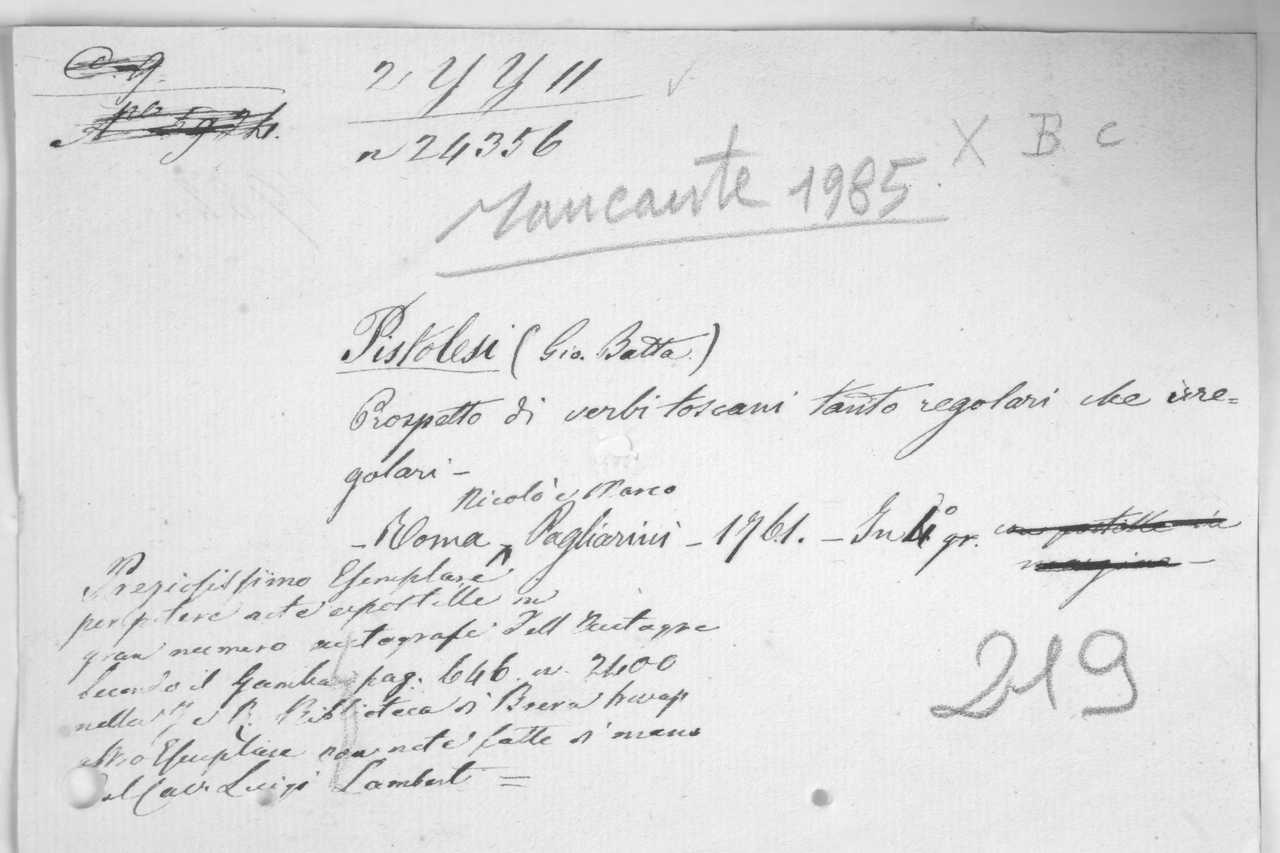 2 YY 11
n 24356
X B C
Mancante 1985
Pistolesi (Gio. Batta.)
Prospetto di verbi toscani tanto regolari che irre=
golari –
Nicolò e Marco
– Roma – Pagliarini – 1761. – In 4° gr. con postille in
margine –
Preziosissimo Esemplare
per note e postille in
gran numero autografe dell'
secondo il Gamba pag. 646. n. 2400
nella I. e R. Biblioteca di Brera
altro Esemplare con note fatte di mano
del Cav. Luigi Lamberti =
219